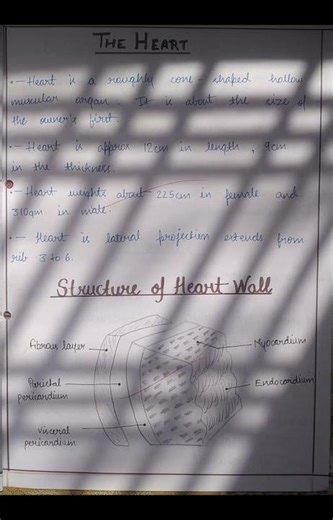 THE HEART
•- Heart is a roughly cone-shaped hollow
muscular organ. It is about the size of
the owner's first.
•- Heart is approx 12cm in length, 9cm
in the thickness
•- Heart weights about 225cm in female and
310gm in male.
•- Heart is lateral projection extends from
rib 3 to 6.
Structure of Heart Wall
Fibrous layer
Myocardium
Parietal
pericardium
Endocardium
Visceral
pericardium